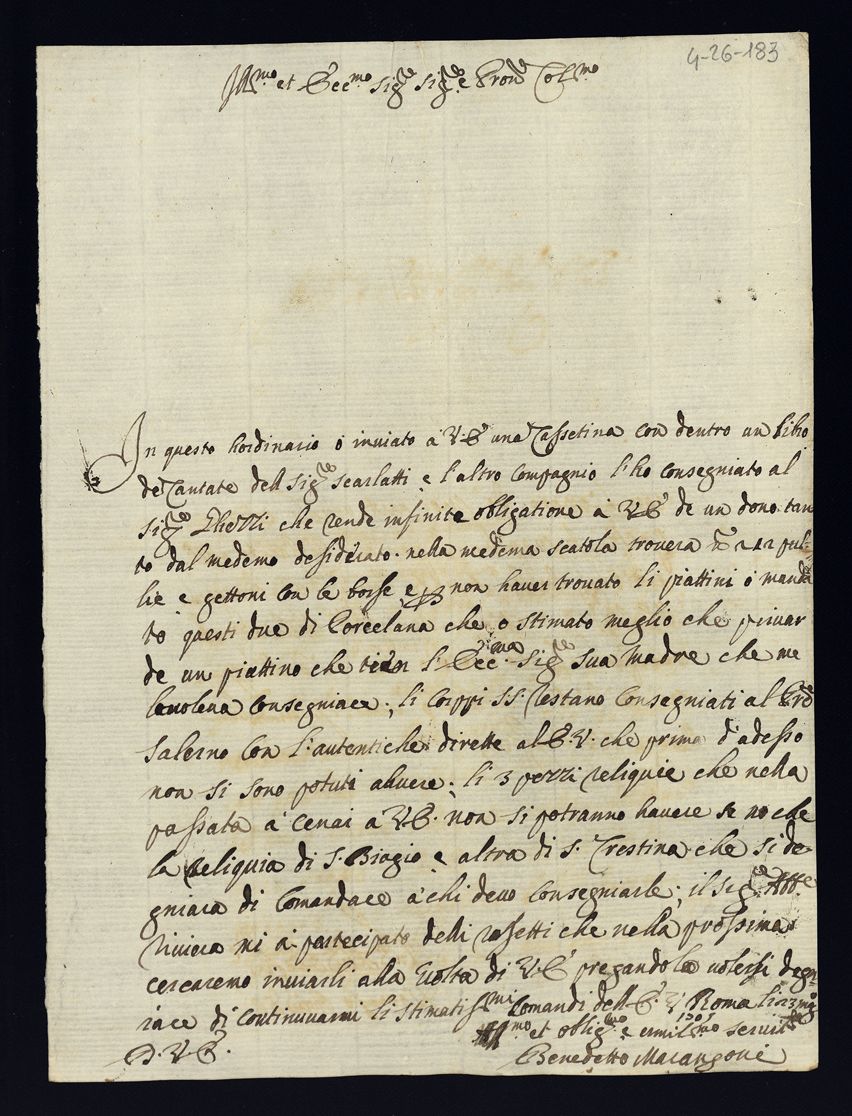 4-26-183
Ill.mo et Ecc.mo Sig.re Sig.re e Pron.e Col.mo
In questo hordinario ò inviato à V.E. una Cassetina con dentro un libro
de Cantate dell Sig.re Scarlatti e l'altro Compagnio l'ho consegniato al
Sig.re Ghezzi che rende infinite obligatione à V.E. de un dono tan
to dal medemo desiderato. nella medema scatola trovera n.o 212 pul-
lie e gettoni con le borse e non haver trovato li piattini ò manda
to questi due di Porcelana che o stimato meglio che privar
de un piattino che tien l'Ecc.ma Sig.re sua Madre che me
lo voleva consegniare; li corpi SS. restano consegniati al Pre
Salerno con l'autentiche dirette al E.V. che prima d'adesso
non si sono potuti avere; li 3 pezzi reliquie che nella
passata acenai a V.E. non si potranno havere se no che
la reliquia di S. Biagio e altra di S. Crestina che si de-
gniara di Comandare à chi devo consegniarle; il Sig.re Abb.e
Riviera mi à partecipato delli rosetti che nella prossima
cercaremo inviarli alla volta di V.E. pregandola volersi degn-
iare di continuarmi li stimatiss.mi Comandi dell E.V. Roma li 23 mag.o
D. V.E. et oblig.mo e umil.mo servit.re
Benedetto Marangoni